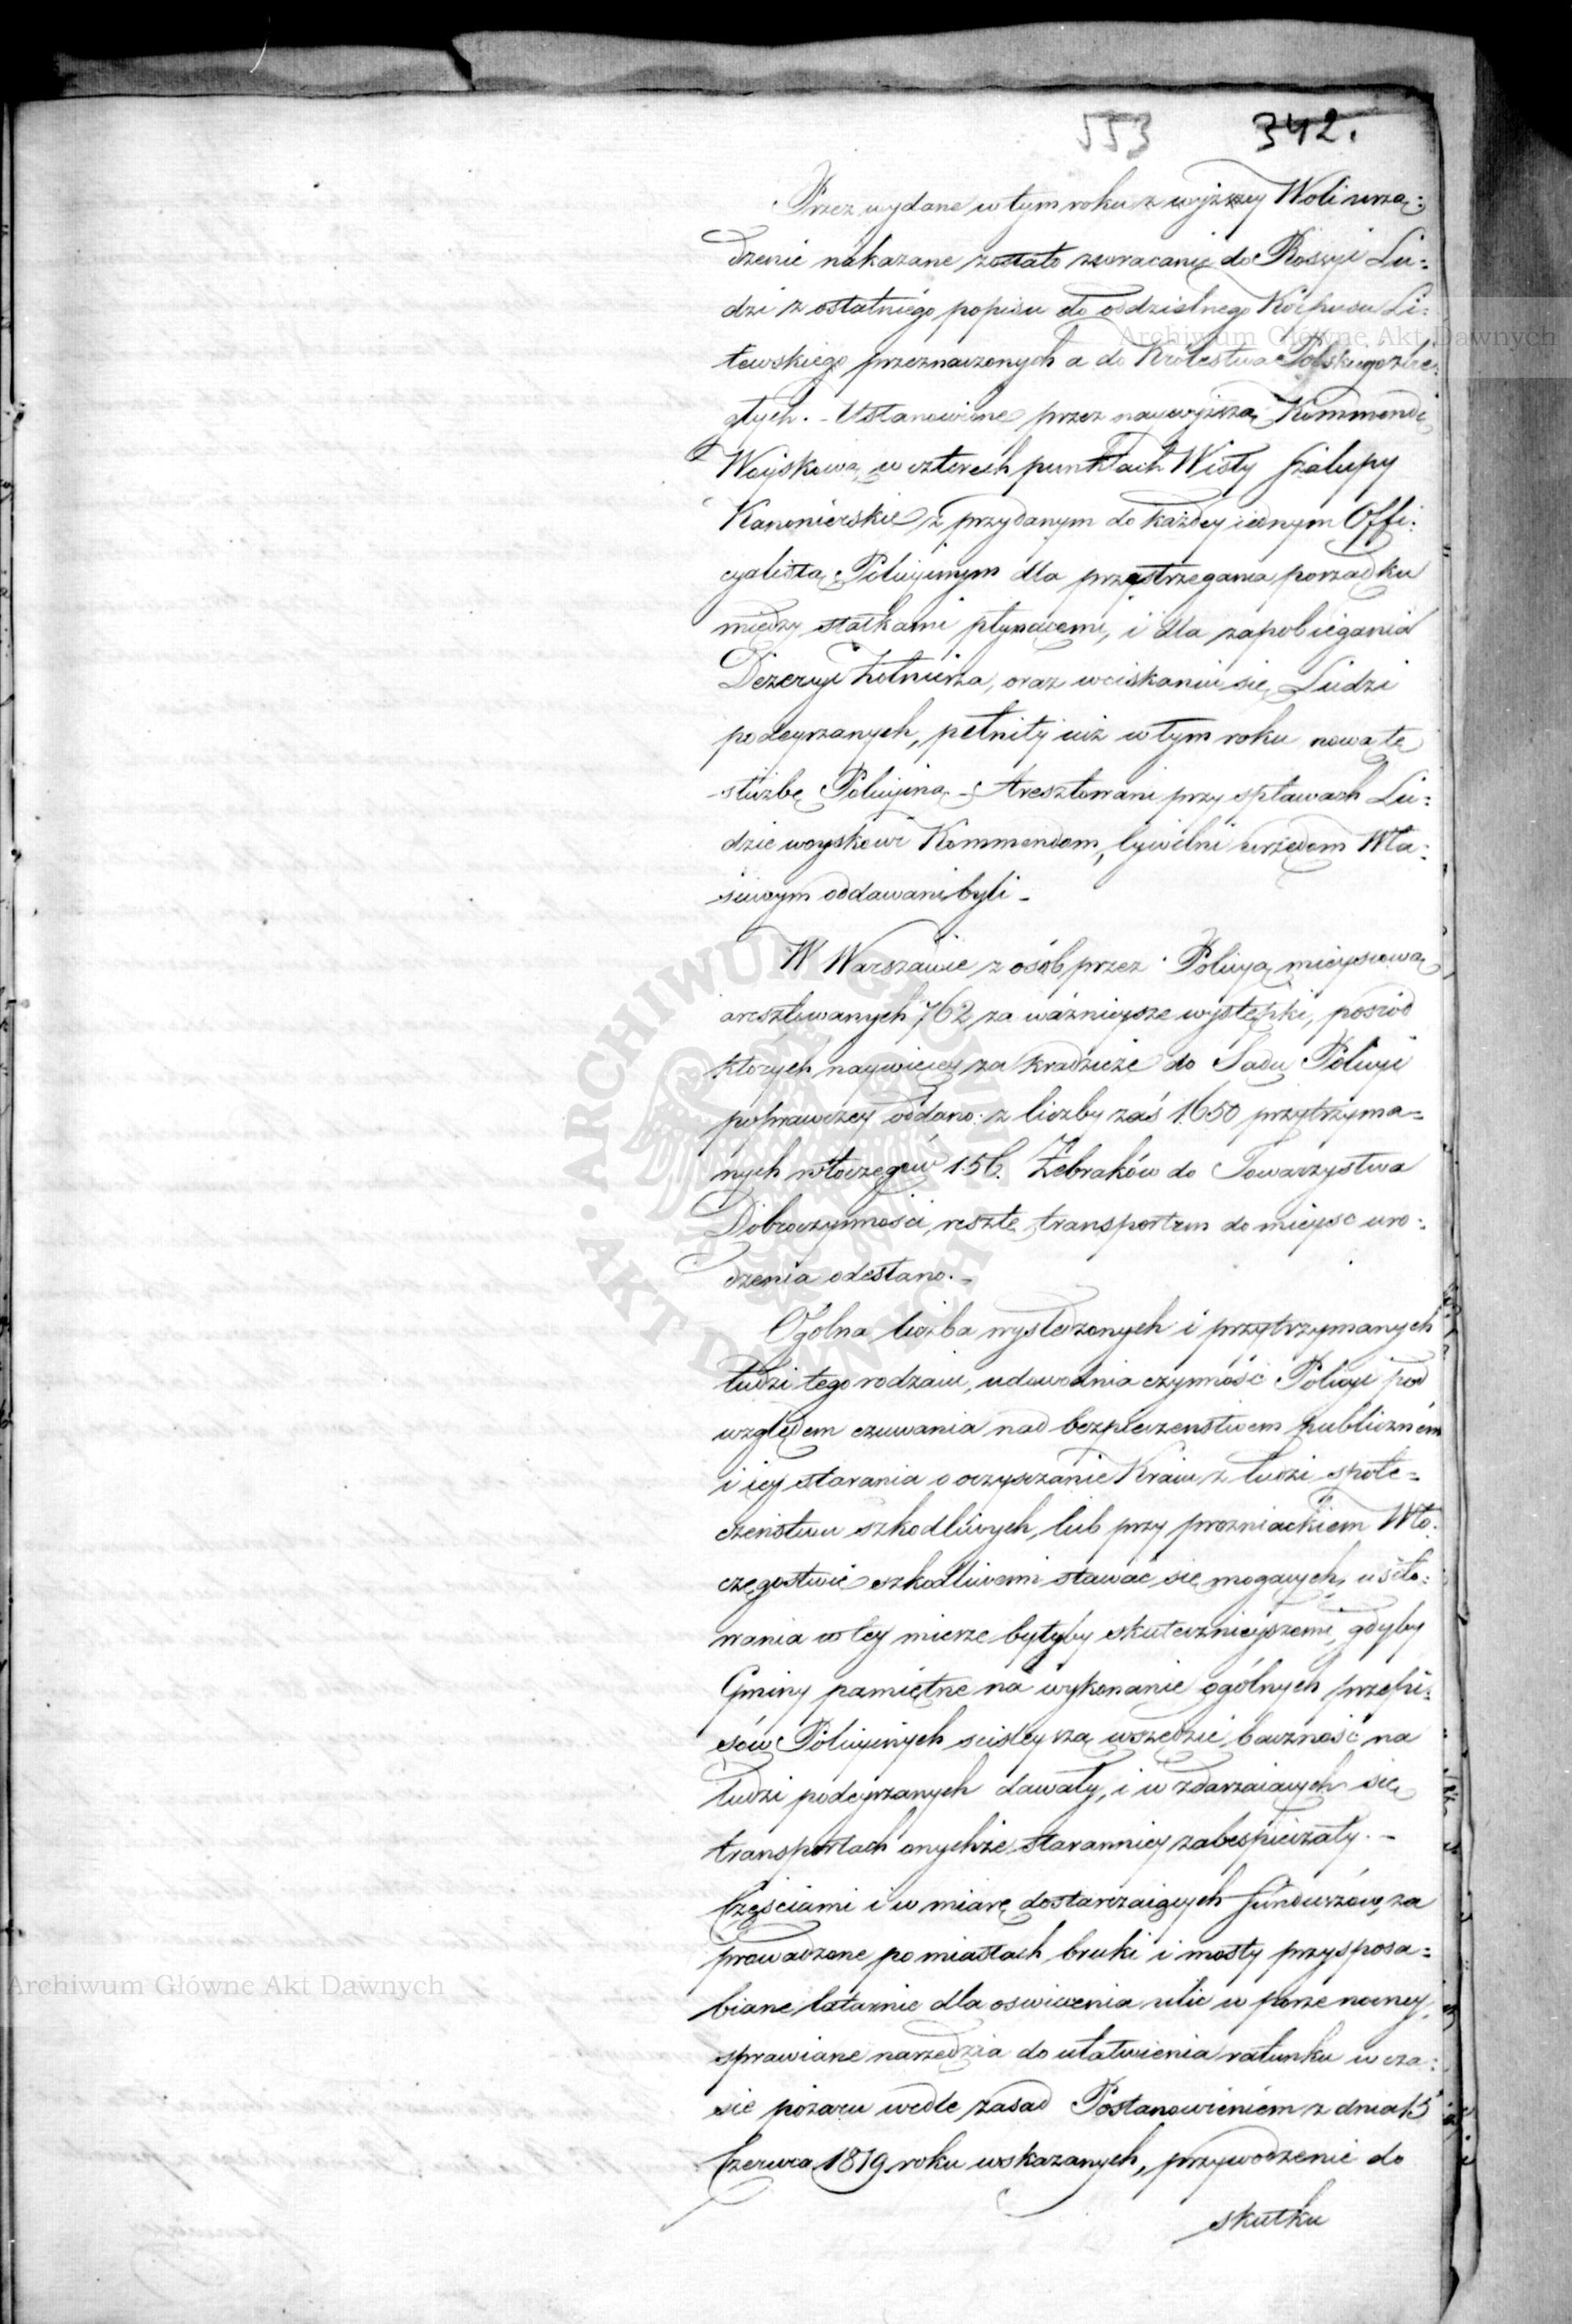 553 342.
Przez wydane w tym roku z wyższey Woli urzą=
dzenie nakazane zostało zwracanie do Rossyi Lu=
dzi z ostatniego popisu do oddzielnego Korpusu Li=
tewskiego przeznaczonych a do Królestwa Polskiego zbie=
głych. - Ustanowione przez naywyższą Kommendę
Woyskową, w czterech punktach Wisły Szalupy
Kanonierskie z przydanym do każdey iednym Offi=
cyalistą Policyinym dla przestrzegania porządku
między statkami płynącemi, i dla zapobiegania
Dezercyi Żołnierza, oraz wciskaniu się Ludzi
podeyrzanych, pełniły iuż w tym roku nową tę
służbę Policyiną. - Aresztowani przy spławach Lu=
dzie woyskowi Kommendom, Cywilni urzędom Wła=
ściwym oddawani byli -
W Warszawie z osób przez Policyą mieyscową
aresztowanych 762 za ważnieysze występki, pośród
których naywięcey za kradzieże do Sądu Policyi
poprawczey oddano: z liczby zaś 1650 przytrzyma=
nych włóczęgów 156. Żebraków do Towarzystwa
Dobroczynności, resztę transportem do mieysc uro=
dzenia odesłano. -
Ogólna liczba wyśledzonych i przytrzymanych
ludzi tego rodzaiu, udowodnia czynność Policyi pod
względem czuwania nad bezpieczeństwem publiczném
i iey starania o oczyszczanie Kraiu z ludzi społe=
czeństwu szkodliwych, lub przy prożniackiem Wło=
częgostwie szkodliwemi stawać się mogących, usiło=
wania w tey mierze byłyby skutecznieyszemi, gdyby
Gminy pamiętne na wykonanie ogólnych przepi=
sów Policyinych scisleyszą wszędzie baczność na
ludzi podeyrzanych dawały, i w zdarzaiących się
transportach onychże staranniey zabespieczały. -
Częściami i w miarę dostarczaiących funduszów, za
prowadzone po miastach bruki i mosty przysposa=
biane latarnie dla oswiecenia ulic w porze nocney,
sprawiane narzędzia do ułatwienia ratunku w cza=
sie pożaru wedle zasad Postanowieniem z dnia 13
Czerwca 1819 roku wskazanych, przywodzenie do
skutku
Archiwum Główne Akt Dawnych
Archiwum Główne Akt Dawnych
ARCHIWUM GŁÓWNE AKT DAWNYCH